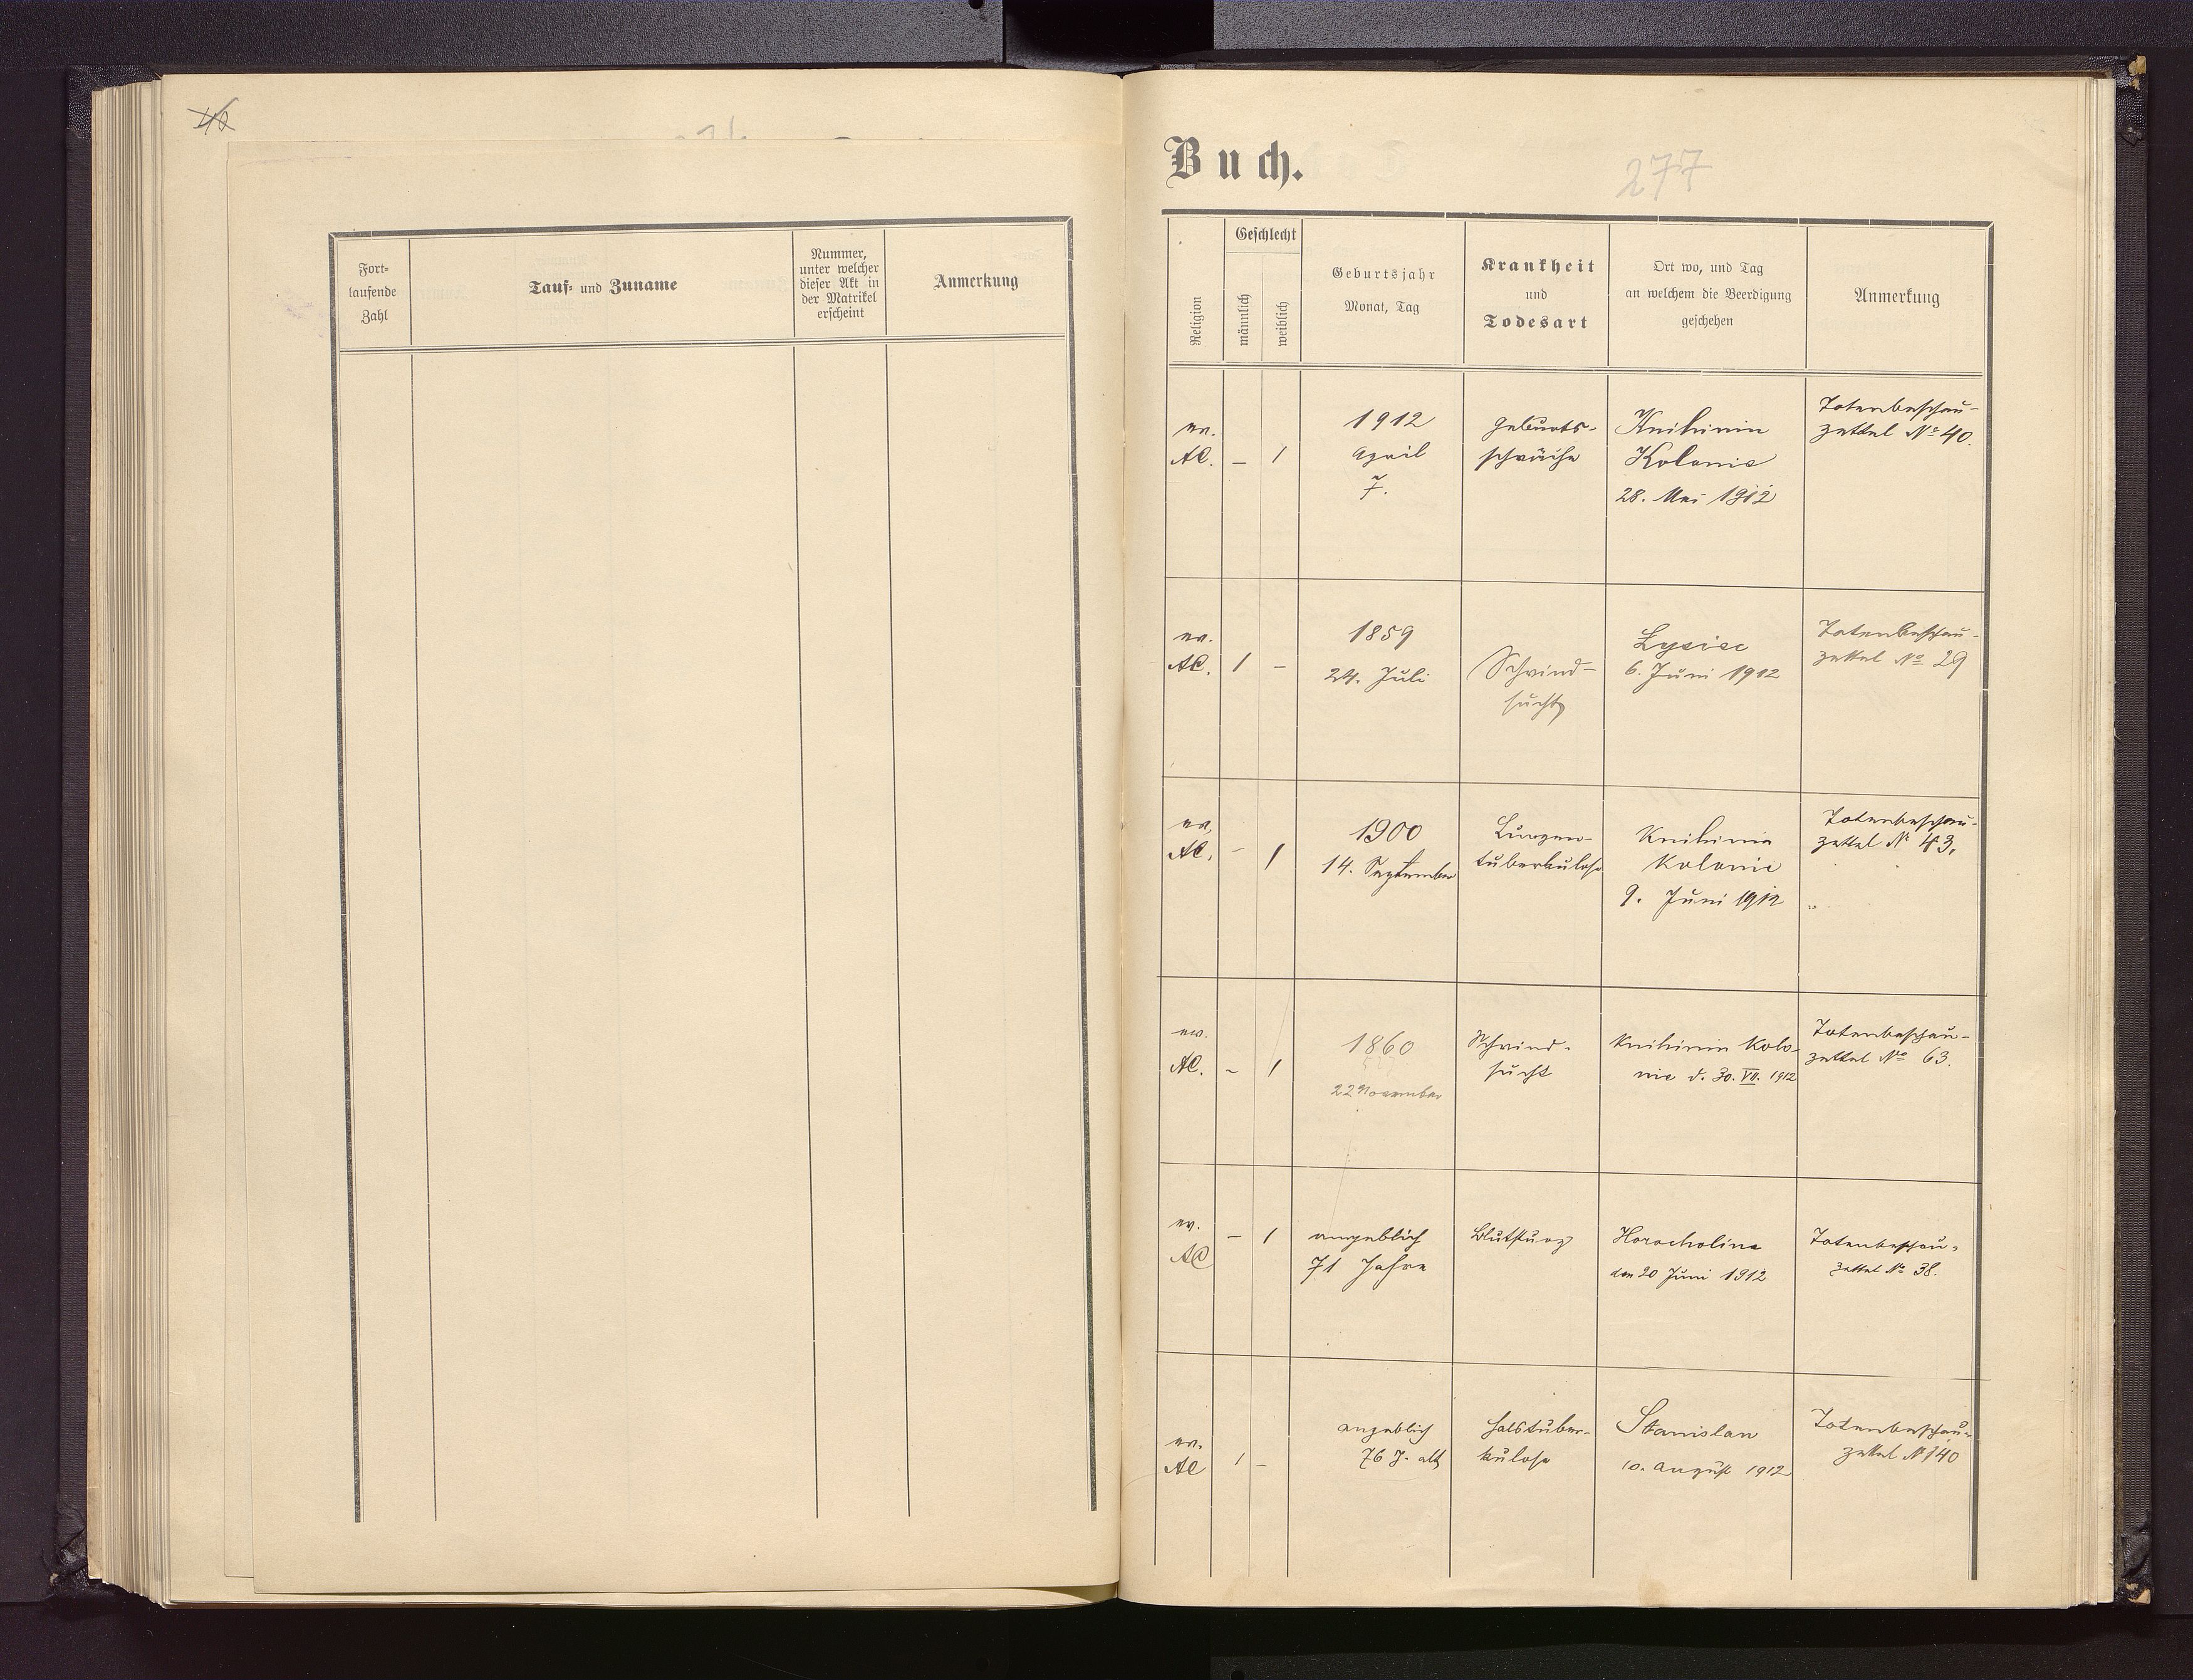 46
Fort-
laufende
Zahl
Tauf- und Zuname
Nummer,
unter welcher
dieser Akt in
der Matrikel
erscheint
Anmerkung
Buch.
277
Religion
Geschlecht
männlich
weiblich
Geburtsjahr
Monat, Tag
Krankheit
und
Todesart
Ort wo, und Tag
an welchem die Beerdigung
geschehen
Anmerkung
ev.
AC.
–
1
1912
April
7.
Geburts-
schwäche
Knihinin
Kolonie
28. Mai 1912
Totenbeschau-
zettel № 40.
ev.
AC.
1
–
1859
24. Juli
Schwind-
sucht
Łysiec
6. Juni 1912
Totenbeschau-
zettel № 29
ev.
AC.
–
1
1900
14. September
Lungen-
tuberkulose
Knihinin
Kolonie
9. Juni 1912
Totenbeschau-
zettel № 43.
ev.
AC.
–
1
1860
22 November
Schwind-
sucht
Knihinin Kolo-
nie d. 30. VII. 1912
Totenbeschau-
zettel № 63.
ev.
AC
–
1
angeblich
71 Jahre
Blutsturz
Horocholina
den 20 Juni 1912
Totenbeschau-
zettel № 38.
ev.
AC
1
–
angeblich
76 J. alt
Halstuber-
kulose
Stanislau
10. August 1912
Totenbeschau-
zettel № 140